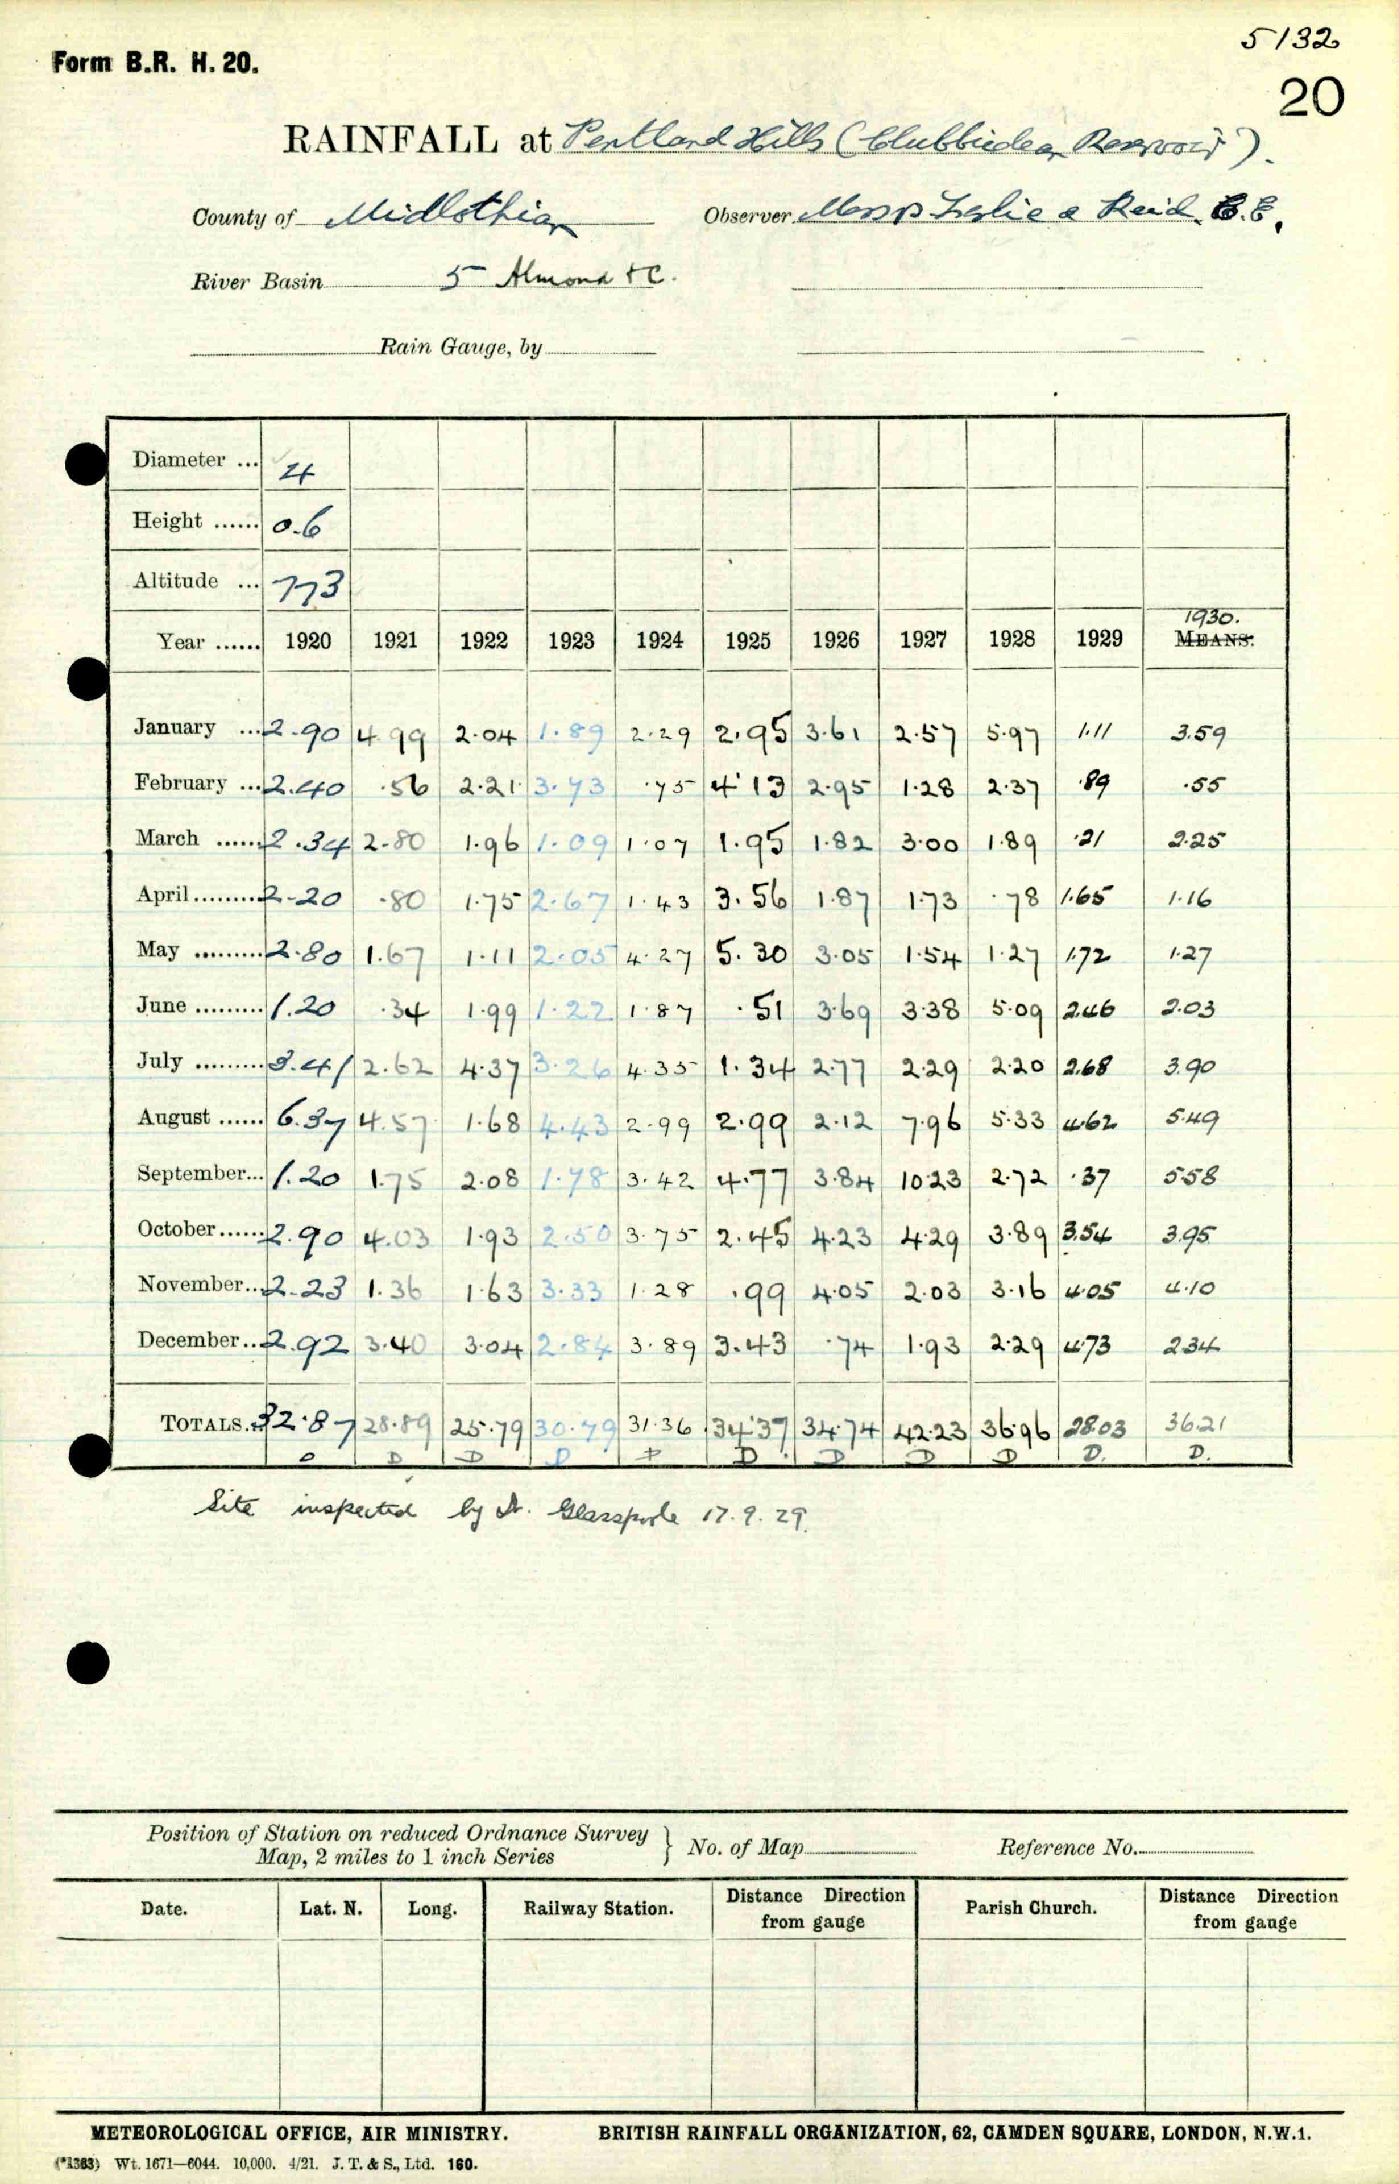 5132
Form B.R. H. 20.
20
RAINFALL at Pentland Hills (Clubbiedean Reservoir).
County of Midlothian Observer Messrs Leslie & Reid, C.E.
River Basin 5 Almond &c.
Rain Gauge, by
Diameter ... 4
Height ...... 0.6
Altitude ... 773
1930.
Year ...... 1920 1921 1922 1923 1924 1925 1926 1927 1928 1929 MEANS.
January ... 2.90 4.99 2.04 1.89 2.29 2.95 3.61 2.57 5.97 1.11 3.59
February ... 2.40 .56 2.21 3.73 .75 4.13 2.95 1.28 2.37 .89 .55
March ...... 2.34 2.80 1.96 1.09 1.07 1.95 1.82 3.00 1.89 .21 2.25
April ......... 2.20 .80 1.75 2.67 1.43 3.56 1.87 1.73 .78 1.65 1.16
May ......... 2.80 1.67 1.11 2.05 4.27 5.30 3.05 1.54 1.27 1.72 1.27
June ......... 1.20 .34 1.99 1.22 1.87 .51 3.69 3.38 5.09 2.46 2.03
July ......... 3.41 2.62 4.37 3.26 4.35 1.34 2.77 2.29 2.20 2.68 3.90
August ...... 6.37 4.57 1.68 4.43 2.99 2.99 2.12 7.96 5.33 4.62 5.49
September... 1.20 1.75 2.08 1.78 3.42 4.77 3.84 10.23 2.72 .37 5.58
October ...... 2.90 4.03 1.93 2.50 3.75 2.45 4.23 4.29 3.89 3.54 3.95
November... 2.23 1.36 1.63 3.33 1.28 .99 4.05 2.03 3.16 4.05 4.10
December... 2.92 3.40 3.04 2.84 3.89 3.43 .74 1.93 2.29 4.73 2.34
TOTALS... 32.87 28.89 25.79 30.79 31.36 34.37 34.74 42.23 36.96 28.03 36.21
D D D D D D D D D. D.
Site inspected by Dr. Glasspoole 17.9.29.
Position of Station on reduced Ordnance Survey
Map, 2 miles to 1 inch Series } No. of Map Reference No.
Date. Lat. N. Long. Railway Station. Distance from gauge Direction Parish Church. Distance from gauge Direction
METEOROLOGICAL OFFICE, AIR MINISTRY. BRITISH RAINFALL ORGANIZATION, 62, CAMDEN SQUARE, LONDON, N.W.1.
(*1383) Wt. 1671—6044. 10,000. 4/21. J. T. & S., Ltd. 160.